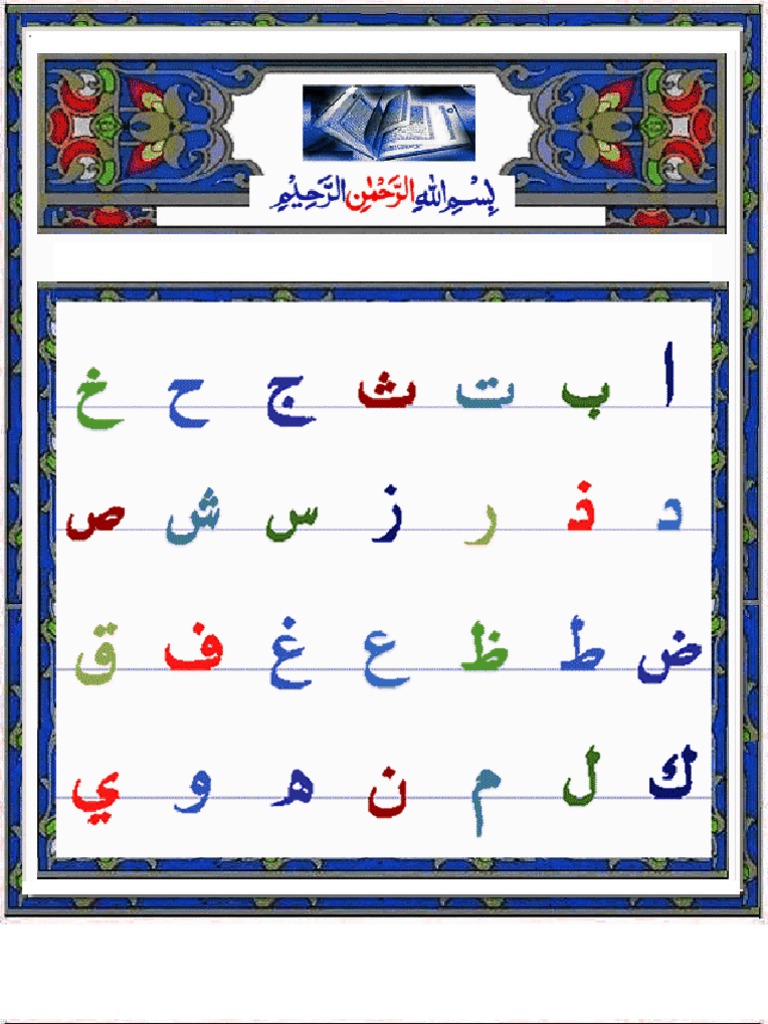 بِسْمِ اللهِ الرَّحْمٰنِ الرَّحِيْمِ
ا ب ت ث ج ح خ
د ذ ر ز س ش ص
ض ط ظ ع غ ف ق
ك ل م ن ه و ي